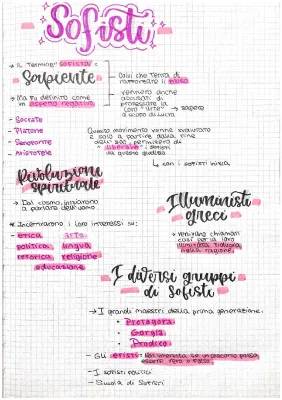 Sofisti
→ il termine "sofista":
Sapiente
Colui che tenta di
mascherare il falso
→ Ma fu definito come
in aspetto negativo
vennero anche
accusati di
professare la
loro "arte" → sapere
a scopo di lucro
- Socrate
- Platone
- Senofonte
- Aristotele
Questo movimento venne
e solo a partire dalla fine
dell' permisero di
"liberare" i sofisti
da questo giudizio
↳ con i sofisti inizia
Rivoluzione
spirituale
→ Dal cosmo, iniziarono
a parlare dell'uomo
Illuministi
greci
→ vennero chiamati
così per la loro
illimitata fiducia
nella ragione.
* Incentrarono i loro interessi su:
etica arte
politica lingua
retorica religione
educazione
I diversi gruppi
di Sofisti
→ I grandi maestri della prima generazione:
• Protagora
• Gorgia
• Prodico
- Gli eristi:
essere vero o falso
- I sofisti politici
- Scuola di